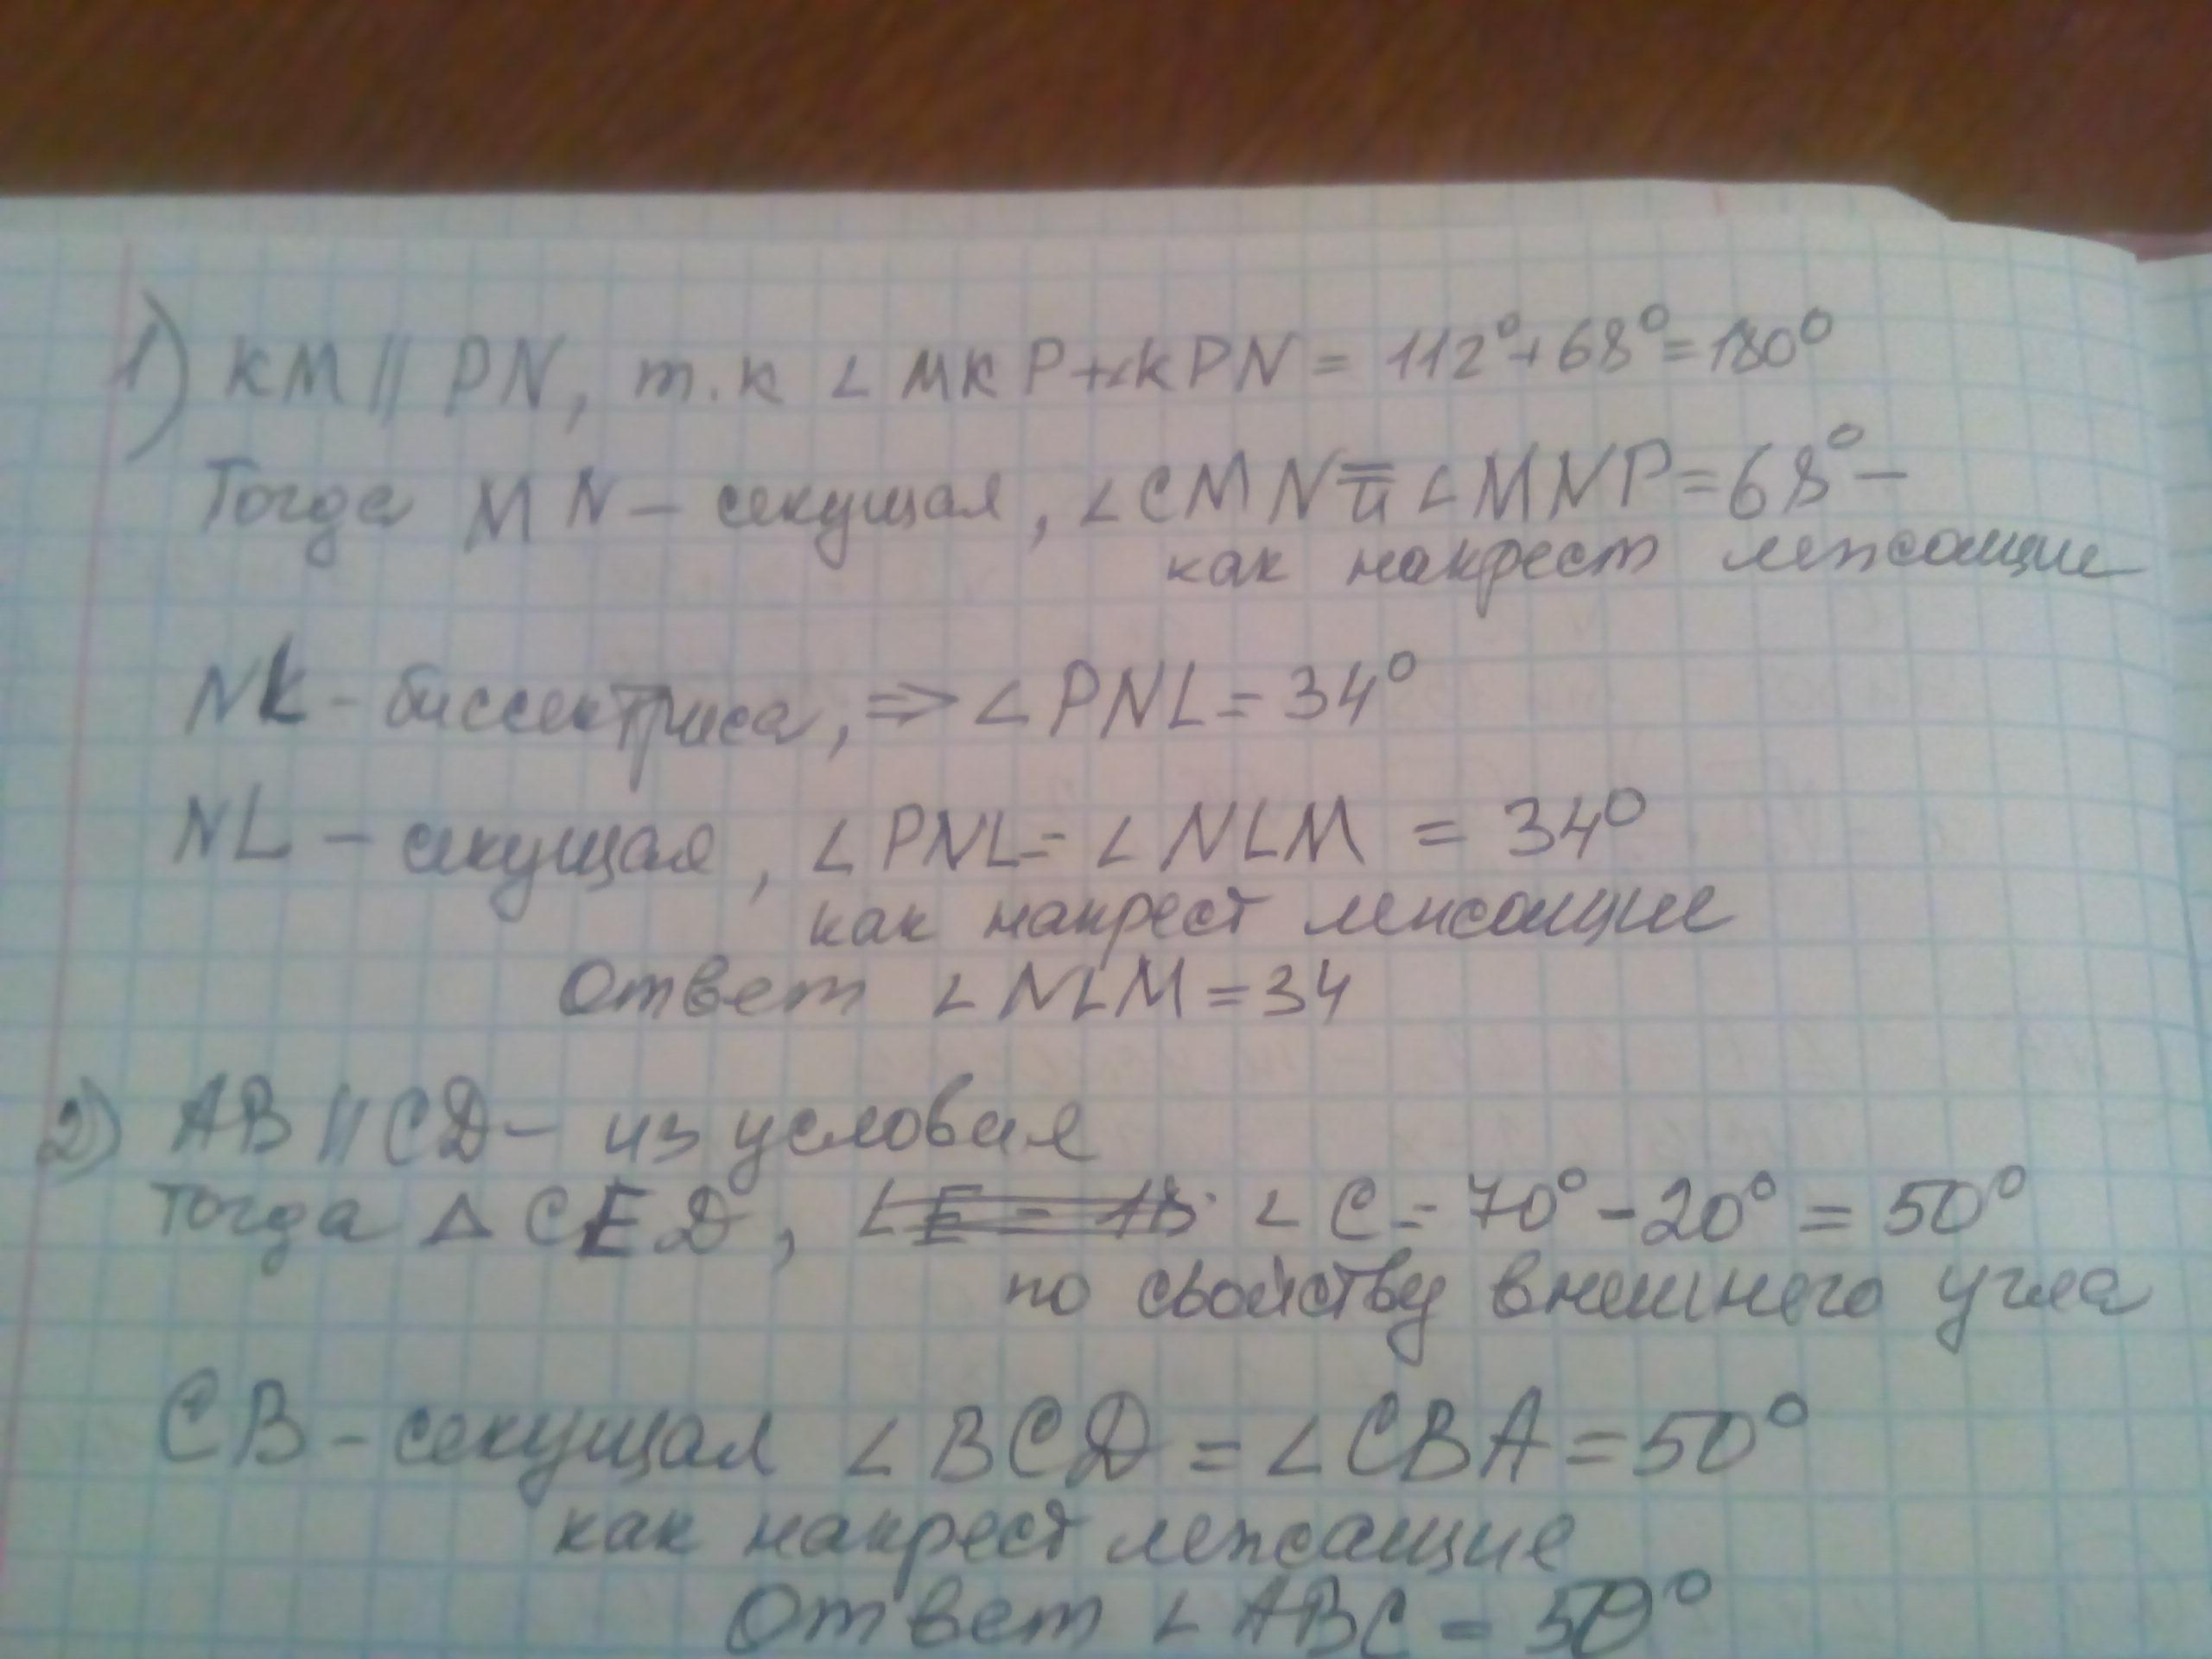 1) KM || PN, т.к ∠MKP+∠KPN = 112°+68°=180°
Тогда MN – секущая, ∠CMN = и ∠MNP=68° –
как накрест лежащие
NL – биссектриса, ⇒ ∠PNL = 34°
NL – секущая, ∠PNL = ∠NLM = 34°
как накрест лежащие
Ответ ∠NLM = 34
2) AB || CD – из условия
Тогда △CED, ∠C = 70° – 20° = 50°
по свойству внешнего угла
CB – секущая ∠BCD = ∠CBA = 50°
как накрест лежащие
Ответ ∠ABC = 50°